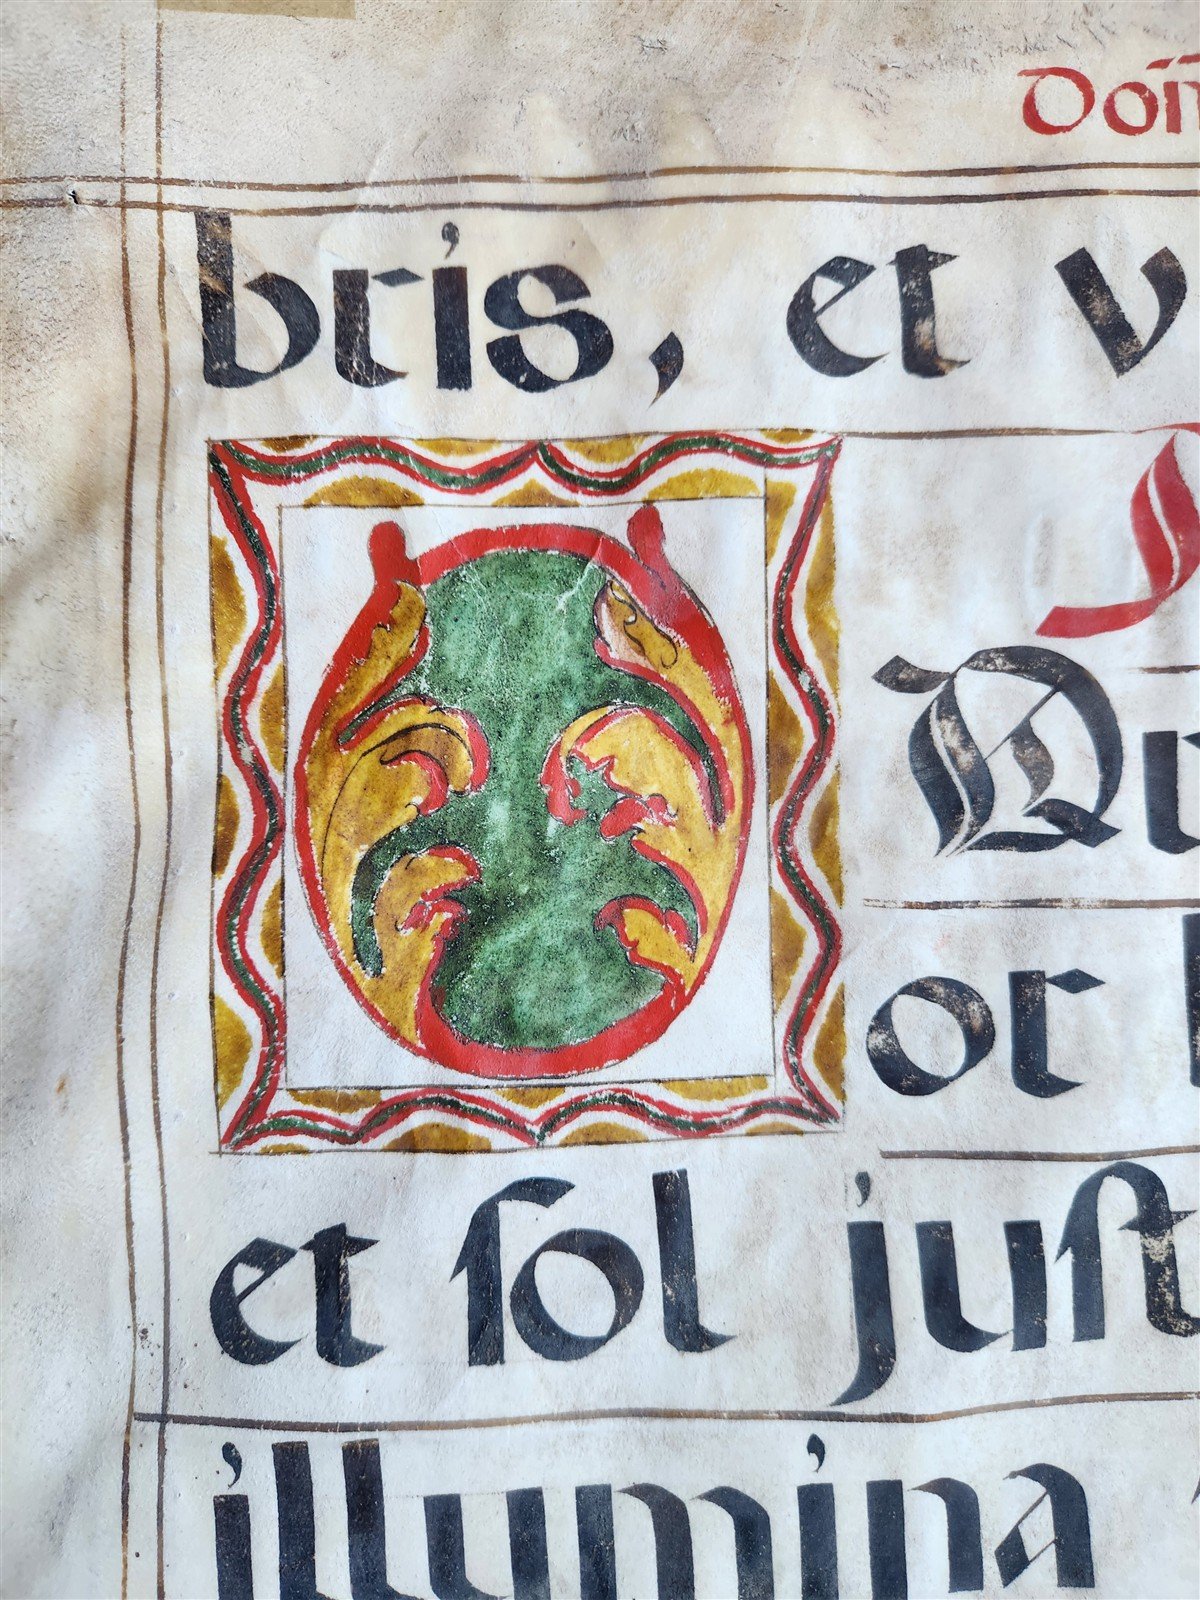 Dom
bris, et v
O Or
or l
et ſol juſt
illumina